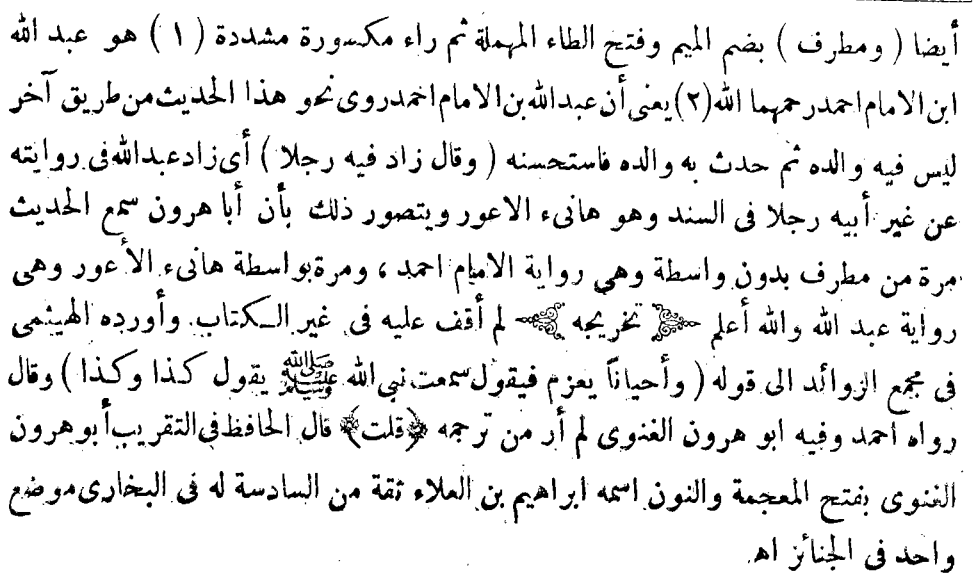 أيضا ( ومطرف ) بضم الميم وفتح الطاء المهملة ثم راء مكسورة مشددة ( ١ ) هو عبد الله
ابن الامام احمد رحمهما الله (٢) يعنى أن عبد الله بن الامام احمد روى نحو هذا الحديث من طريق آخر
ليس فيه والده ثم حدث به والده فاستحسنه ( وقال زاد فيه رجلا ) أى زاد عبد الله فى روايته
عن غير أبيه رجلا فى السند وهو هانىء الاعور ويتصور ذلك بأن أبا هرون سمع الحديث
مرة من مطرف بدون واسطة وهي رواية الامام احمد ، ومرة بواسطة هانىء الأعور وهى
رواية عبد الله والله أعلم ﴿ تخريجه ﴾ لم أقف عليه فى غير الكتاب. وأورده الهيثمى
فى مجمع الزوائد الى قوله ( وأحياناً يعزم فيقول سمعت نبى الله ﷺ يقول كذا وكذا ) وقال
رواه احمد وفيه ابو هرون الغنوى لم أر من ترجمه ﴿قلت﴾ قال الحافظ فى التقريب أبو هرون
الغنوى بفتح المعجمة والنون اسمه ابراهيم بن العلاء ثقة من السادسة له فى البخارى موضع
واحد فى الجنائز اه.